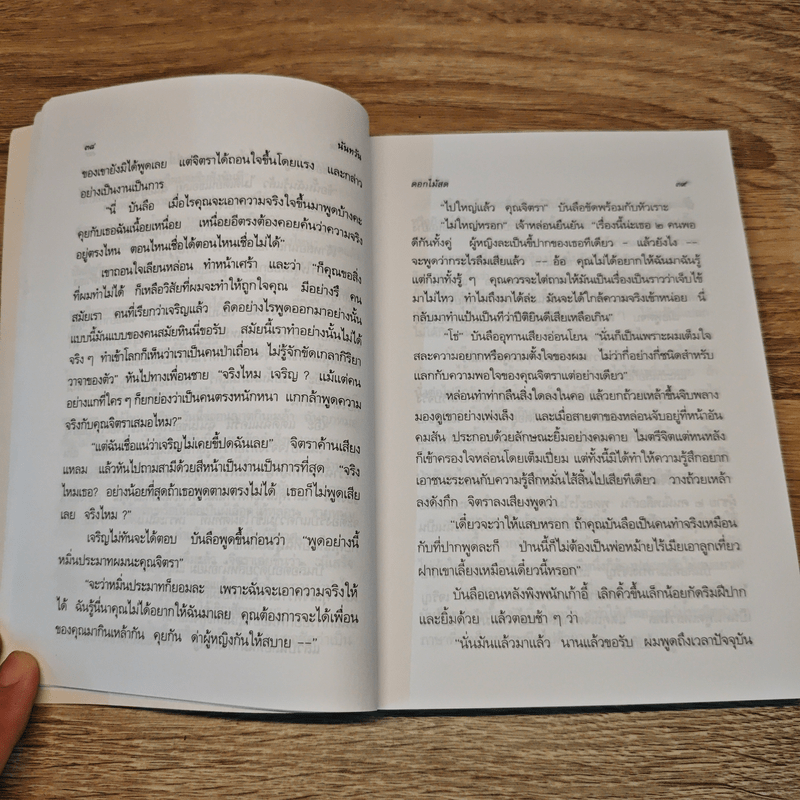 ๓๘
นันทวัน
ของเขายังมิได้พูดเลย แต่จิตราได้ถอนใจขึ้นโดยแรง และกล่าว
อย่างเป็นงานเป็นการ
“นี่ บันลือ เมื่อไรคุณจะเอาความจริงใจขึ้นมาพูดบ้างคะ
คุยกับเธอฉันเนื้อยเหนื่อย เหนื่อยอีตรงต้องคอยค้นว่าความจริง
อยู่ตรงไหน ตอนไหนเชื่อได้ตอนไหนเชื่อไม่ได้”
เขาถอนใจเลียนหล่อน ทำหน้าเศร้า และว่า “ก็คุณขอสิ่ง
ที่ผมทำไม่ได้ ก็เหลือวิสัยที่ผมจะทำให้ถูกใจคุณ มีอย่างรึ คน
สมัยเรา คนที่เรียกว่าเจริญแล้ว คิดอย่างไรพูดออกมาอย่างนั้น
แบบนี้มันแบบของคนสมัยหินนี่ขอรับ สมัยนี้เราทำอย่างนั้นไม่ได้
จริง ๆ ทำเข้าโลกก็เห็นว่าเราเป็นคนป่าเถื่อน ไม่รู้จักขัดเกลากิริยา
วาจาของตัว” หันไปทางเพื่อนชาย “จริงไหม เจริญ ? แม้แต่คน
อย่างแกที่ใคร ๆ ก็ยกย่องว่าเป็นคนตรงหนักหนา แกกล้าพูดความ
จริงกับคุณจิตราเสมอไหม?”
“แต่ฉันเชื่อแน่ว่าเจริญไม่เคยขี้ปดฉันเลย” จิตราค้านเสียง
แหลม แล้วหันไปถามสามีด้วยสีหน้าเป็นงานเป็นการที่สุด “จริง
ไหมเธอ? อย่างน้อยที่สุดถ้าเธอพูดตามตรงไม่ได้ เธอก็ไม่พูดเสีย
เลย จริงไหม ?”
เจริญไม่ทันจะได้ตอบ บันลือพูดขึ้นก่อนว่า “พูดอย่างนี้
หมิ่นประมาทผมนะคุณจิตรา”
“จะว่าหมิ่นประมาทก็ยอมละ เพราะฉันจะเอาความจริงให้
ได้ ฉันรู้ที่นาคุณไม่ได้อยากให้ฉันมาเลย คุณต้องการจะได้เพื่อน
ของคุณมากินเหล้ากัน คุยกัน ด่าผู้หญิงกันให้สบาย --”
ดอกไม้สด
๓๙
“ไปใหญ่แล้ว คุณจิตรา” บันลือขัดพร้อมกับหัวเราะ
“ไม่ใหญ่หรอก” เจ้าหล่อนยืนยัน “เรื่องนี้น่ะเธอ ๒ คนพอ
ดีกันทั้งคู่ ผู้หญิงละเป็นขี้ปากของเธอทีเดียว - แล้วยังไง --
จะพูดว่ากระไรลืมเสียแล้ว -- อ้อ คุณไม่ได้อยากให้ฉันมาฉันรู้
แต่ก็มาทั้งรู้ ๆ คุณควรจะไต่ถามให้มันเป็นเรื่องเป็นราวว่าเจ็บไข้
มาไม่ไหว ทำไมถึงมาได้ล่ะ มันจะได้ใกล้ความจริงเข้าหน่อย นี่
กลับมาทำแป้นเป็นทีว่าปีติยินดีเสียเหลือเกิน”
“โซ่” บันลืออุทานเสียงอ่อนโยน “นั่นก็เป็นเพราะผมเต็มใจ
สละความอยากหรือความตั้งใจของผม ไม่ว่ากี่อย่างกี่ชนิดสำหรับ
แลกกับความพอใจของคุณจิตราแต่อย่างเดียว”
หล่อนทำท่ากลืนสิ่งใดลงในคอ แล้วยกถ้วยเหล้าขึ้นจิบพลาง
มองดูเขาอย่างเพ่งเล็ง และเมื่อสายตาของหล่อนจับอยู่ที่หน้าอัน
คมสัน ประกอบด้วยลักษณะยิ้มอย่างคมคาย ไมตรีจิตแต่หนหลัง
ก็เข้าครองใจหล่อนโดยเต็มเปี่ยม แต่ทั้งนี้มิได้ทำให้ความรู้สึกอยาก
เอาชนะระคนกับความรู้สึกหมั่นไส้สิ้นไปเสียทีเดียว วางถ้วยเหล้า
ลงดังกึก จิตราลงเสียงพูดว่า
“เดี๋ยวจะว่าให้แสบหรอก ถ้าคุณบันลือเป็นคนทำจริงเหมือน
กับที่ปากพูดละก็ ป่านนี้ก็ไม่ต้องเป็นพ่อหม้ายไร้เมียเอาลูกเที่ยว
ฝากเขาเลี้ยงเหมือนเดี๋ยวนี้หรอก”
บันลือเอนหลังพิงพนักเก้าอี้ เลิกคิ้วขึ้นเล็กน้อยกัดริมฝีปาก
และยิ้มด้วย แล้วตอบช้า ๆ ว่า
“นั่นมันแล้วมาแล้ว นานแล้วขอรับ ผมพูดถึงเวลาปัจจุบัน